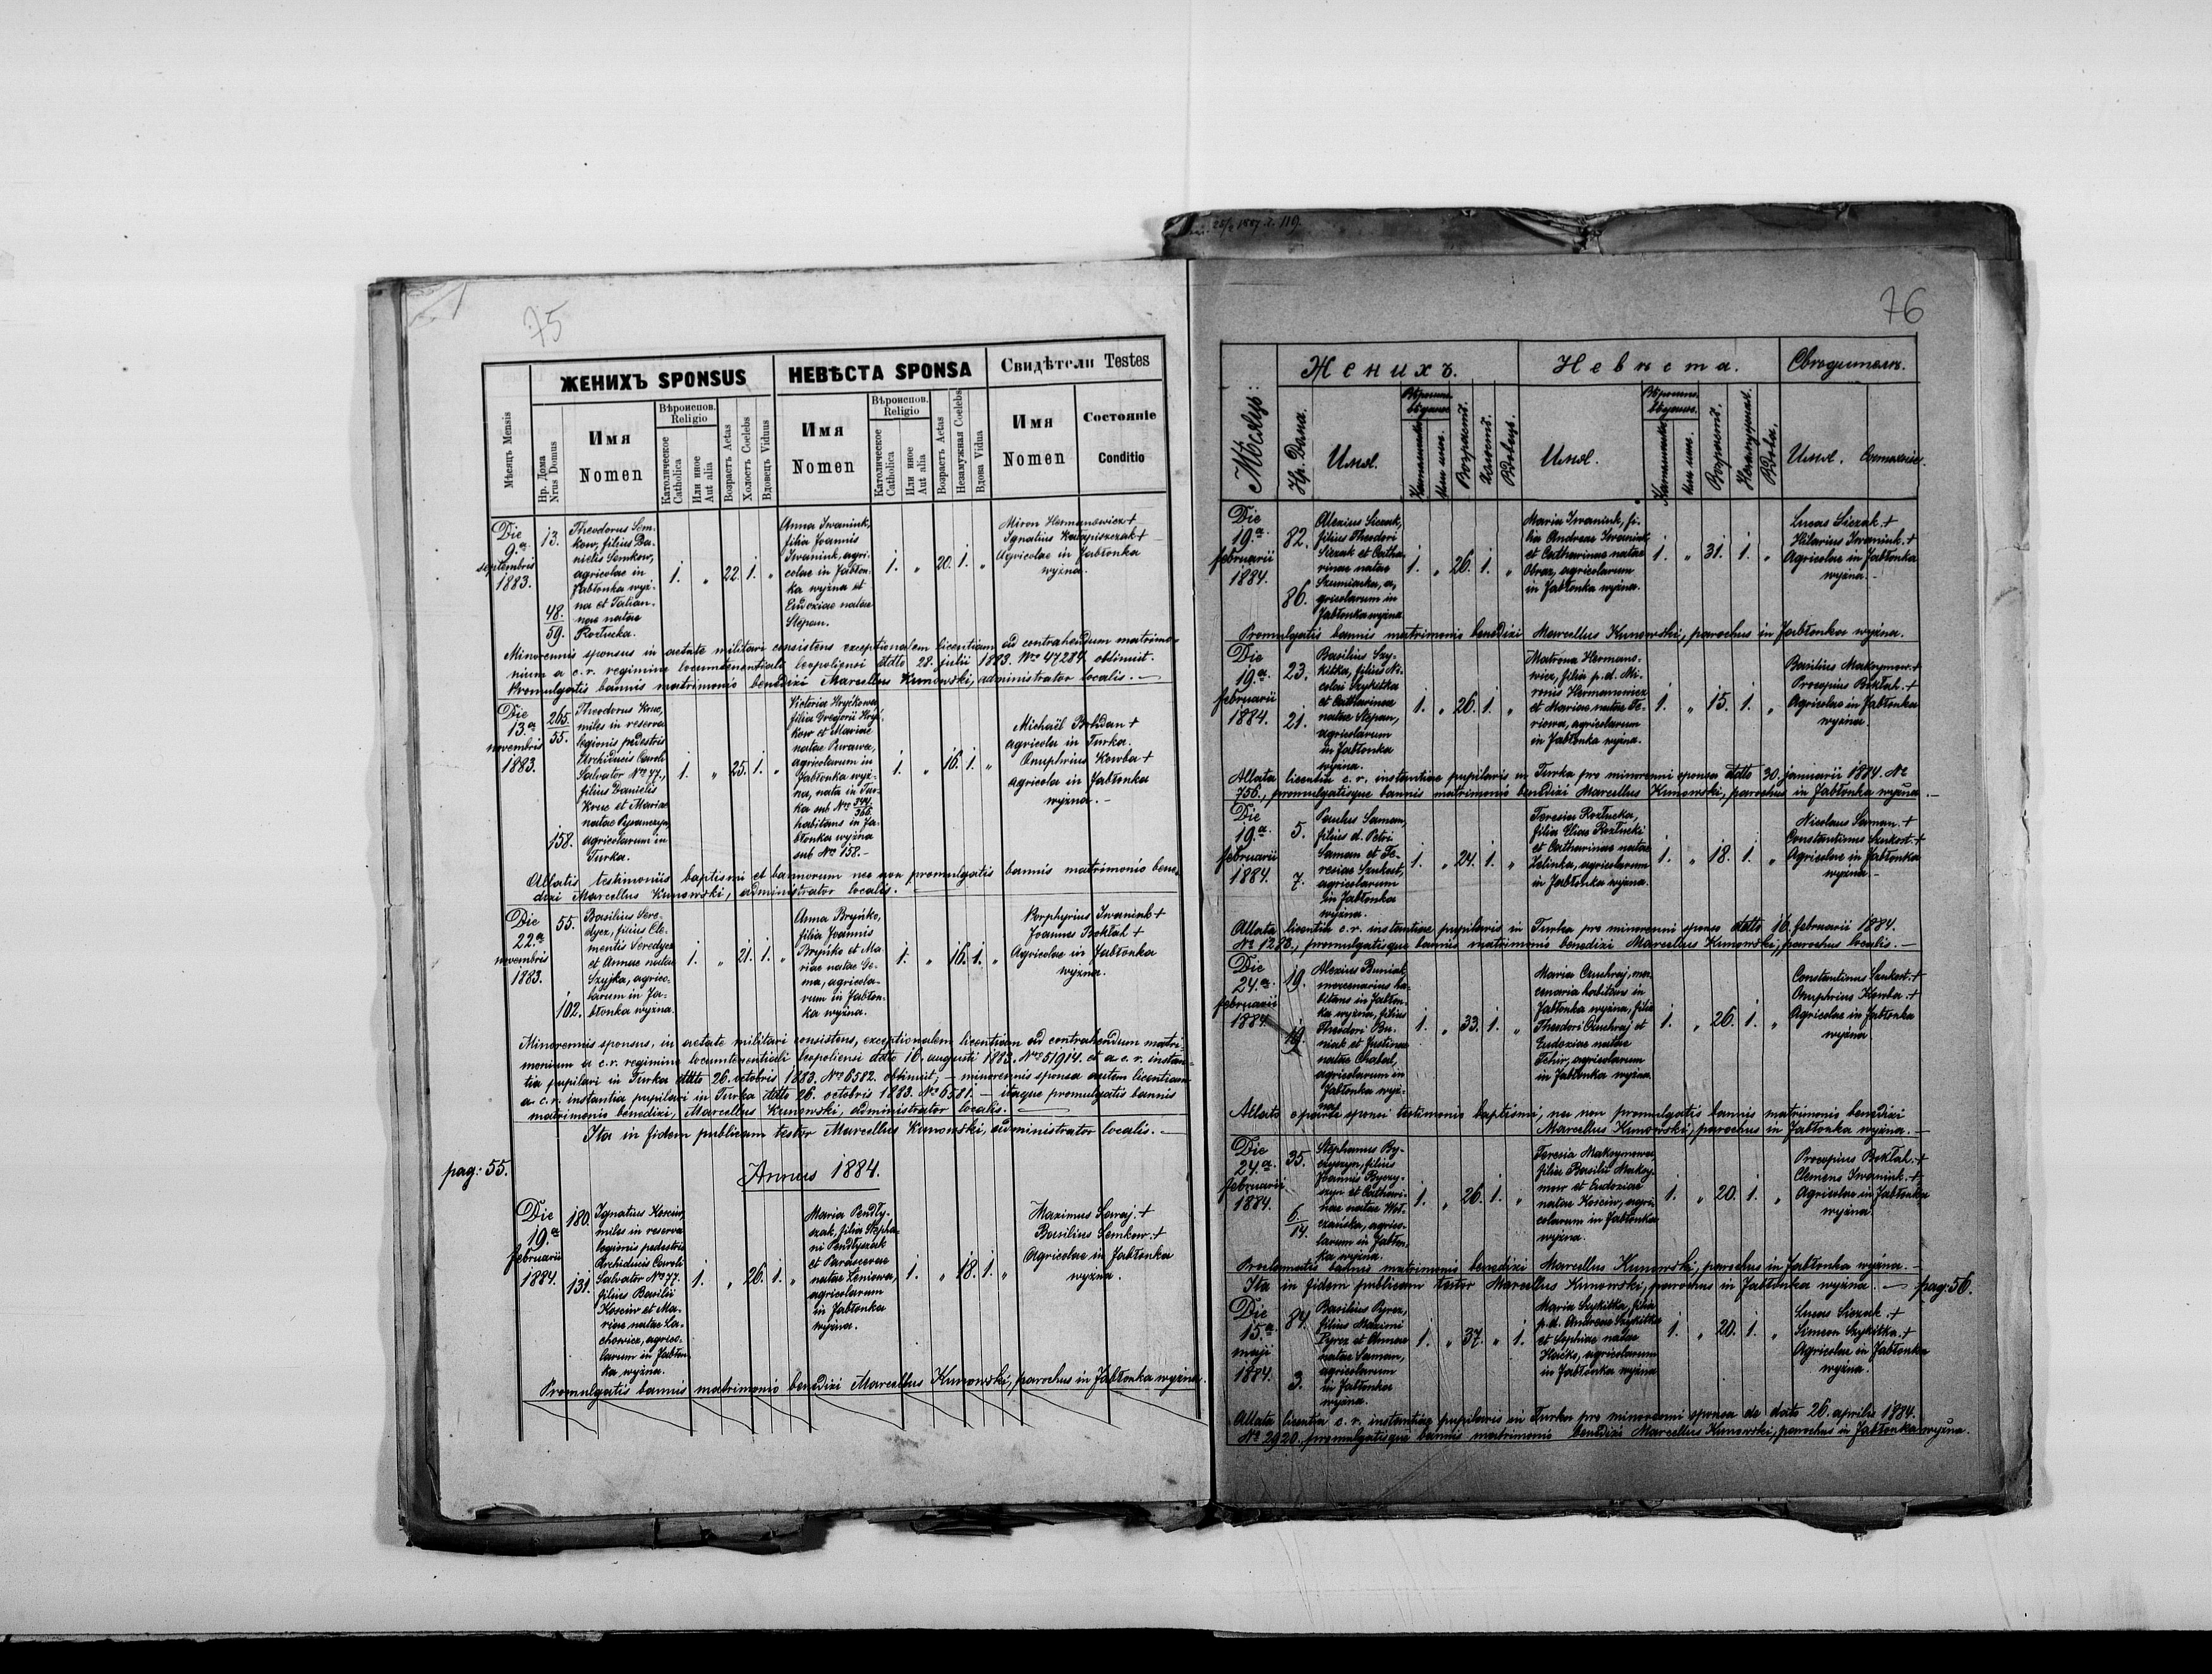 75
ЖЕНИХЪ SPONSUS
НЕВѢСТА SPONSA
Свидѣтели Testes
Мѣсяць Mensis
Нр. Дома
Nrus Domus
Имя
Nomen
Вѣроиспов.
Religio
Католическое
Catholica
Или иное
Aut alia
Возрастъ Aetas
Холостъ Coelebs
Вдовецъ Viduus
Имя
Nomen
Вѣроиспов.
Religio
Католическое
Catholica
Или иное
Aut alia
Возрастъ Aetas
Незамужная Coelebs
Вдова Vidua
Имя
Nomen
Состояніе
Conditio
Die
9.a
septembris
1883.
13.
48.
59.
Theodorus Sem-
kow, filius Da-
nielis Semkow,
agricolae in
Jabłonka wyż-
na et Tatian-
nae natae
Rozłucka.
1. " 22. 1. "
Anna Iwanink,
filia Joannis
Iwanink, agri-
colae in Jabłon-
ka wyżna et
Eudoxiae natae
Stepan.
1. " 20. 1. "
Miron Hermanowicz +
Ignatius +
Agricolae in Jabłonka
wyżna.
Minorennis sponsus in aetate militari consistens exceptionalem licentiam ad contrahendum matrimo-
nium a c. r. regimine locumtenentiali leopoliensi ddto 28. julii 1883. Nro 47284. obtinuit.
Promulgatis bannis matrimonio benedixi Marcellus Kunowski, administrator localis. —
Die
13.a
novembris
1883.
265.
55.
158.
Theodorus Kruc,
miles in reserva
legionis pedestris
Archiducis Caroli
Salvator No 77.,
filius Danielis
Kruc et Mariae
natae
agricolarum in
Turka.
1. " 25. 1. "
Victoria Hryćkowa
filia Gregorii Hryć-
kow et Mariae
natae
agricolarum in
Jabłonka wyż-
na, nata in Tur-
ka sub No
habitans in Ja-
błonka wyżna
sub No 158. —
1. " 16. 1. "
Michaël Bohdan +
agricola in Turka.
Onuphrius Kowba +
agricola in Jabłonka
wyżna. —
Allatis testimoniis baptismi et bannorum nec non promulgatis bannis matrimonio bene-
dixi Marcellus Kunowski, administrator localis. —
Die
22.a
novembris
1883.
55.
102.
Basilius Sere-
dycz, filius Cle-
mentis Seredycz
et Annae natae
Szyjka, agrico-
larum in Ja-
błonka wyżna.
1. " 21. 1. "
Anna Bryńko,
filia Joannis
Bryńko et Ma-
riae natae Ge-
ma, agricola-
rum in Jabłon-
ka wyżna.
1. " 16. 1. "
Porphyrius Iwanink +
Joannes Boktah +
Agricolae in Jabłonka
wyżna.
Minorennis sponsus, in aetate militari consistens, exceptionalem licentiam ad contrahendum matri-
monium a c. r. regimine locumtenentiali leopoliensi ddto 16. augusti 1883. Nro 51914. et a c. r. instan-
tia pupilari in Turka ddto 26. octobris 1883. No 6582. obtinuit, — minorennis sponsa autem licentiam
a c. r. instantia pupilari in Turka ddto 26. octobris 1883. No 6581. — itaque promulgatis bannis
matrimonio benedixi, Marcellus Kunowski, administrator localis. —
Ita in fidem publicam testor Marcellus Kunowski, administrator localis. —
pag: 55.
Annus 1884.
Die
19.a
februarii
1884.
180.
131.
Ignatius Kosciw,
miles in reserva
legionis pedestris
Archiducis Caroli
Salvator No 77.
filius Basilii
Kosciw et Ma-
riae natae La-
chowicz, agrico-
larum in Jabłon-
ka, wyżna.
1. " 26. 1. "
Maria Pendły-
szak, filia Stepha-
ni Pendłyszak
et Parascevae
natae Leniowa,
agricolarum
in Jabłonka
wyżna.
1. " 18. 1. "
Maximus +
Basilius Semkow +
Agricolae in Jabłonka
wyżna.
Promulgatis bannis matrimonio benedixi Marcellus Kunowski, parochus in Jabłonka wyżna.
119.
76
Женихъ.
Невѣста.
Мѣсяцъ
Нр. Дома.
Имя.
Возрастъ.
Холостъ.
Вдовецъ.
Имя.
Возрастъ.
Вдова.
Имя.
Die
19.a
februarii
1884.
82.
86.
Alexius Siczak,
filius Theodori
Siczak et Catha-
rinae natae
Szumiańka, a-
gricolarum in
Jabłonka wyżna
1. " 26. 1. "
Maria Iwanink, fi-
lia Andreae Iwanink
et Catharinae natae
Obraz, agricolarum
in Jabłonka wyżna.
1. " 31. 1. "
Lucas Siczak +
Hilarius Iwanink +
Agricolae in Jabłonka
wyżna. —
Promulgatis bannis matrimonio benedixi Marcellus Kunowski, parochus in Jabłonka wyżna.
Die
19.a
februarii
1884.
23.
21.
Basilius Szy-
kitka, filius Ni-
colai Szykitka
et Catharinae
natae Stepan,
agricolarum
in Jabłonka
wyżna.
1. " 26. 1. "
Matrona Hermano-
wicz, filia p. d. Mi-
ronis Hermanowicz
et Mariae natae
agricolarum
in Jabłonka wyżna.
1. " 15. 1. "
Basilius Maksymow +
Procopius Boktah +
Agricolae in Jabłonka
wyżna.
Allata licentia c. r. instantiae pupilaris in Turka pro minorenni sponsa ddto 30. januarii 1884. No
756., promulgatisque bannis matrimonio benedixi Marcellus Kunowski, parochus in Jabłonka wyżna —
Die
19.a
februarii
1884.
5.
7.
Paulus Saman,
filius d. Petri
Saman et Te-
resiae Szukost,
agricolarum
in Jabłonka
wyżna.
1. " 24. 1. "
Teresia Rozłucka,
filia Eliae Rozłucki
et Catharinae natae
Jelinka, agricolarum
in Jabłonka wyżna.
1. " 18. 1. "
Nicolaus Saman +
Constantinus Szukost +
Agricolae in Jabłonka
wyżna —
Allata licentia c. r. instantiae pupilaris in Turka pro minorenni sponso ddto 16. februarii 1884.
No 1283., promulgatisque bannis matrimonio benedixi Marcellus Kunowski, parochus localis. —
Die
24.a
februarii
1884.
19.
19.
Alexius Buniak,
mercenarius ha-
bitans in Jabłon-
ka wyżna, filius
Theodori Bu-
niak et Justinae
natae Chabal,
agricolarum in
Jabłonka wyż-
na.
1. " 33. 1. "
Maria Czuchraj, mer-
cenaria habitans in
Jabłonka wyżna, filia
Theodori Czuchraj et
Eudoxiae natae
Fehir, agricolarum
in Jabłonka wyżna.
1. " 26. 1. "
Constantinus Szukost +
Onuphrius Kowba +
Agricolae in Jabłonka
wyżna
Allato e parte sponsi testimonio baptismi, nec non promulgatis bannis matrimonio benedixi
Marcellus Kunowski, parochus in Jabłonka wyżna. —
Die
24.a
februarii
1884.
35.
6.
14.
Stephanus By-
czyszyn, filius
Joannis Byczy-
szyn et Cathari-
nae natae Woł-
czańska, agrico-
larum in Jabłon-
ka wyżna.
1. " 26. 1. "
Teresia Maksymowa
filia Basilii Maksy-
mow et Eudoxiae
natae Kosciw, agri-
colarum in Jabłonka
wyżna.
1. " 20. 1. "
Procopius Boktah +
Clemens Iwanink +
Agricolae in Jabłonka
wyżna.
Proclamatis bannis matrimonio benedixi Marcellus Kunowski, parochus in Jabłonka wyżna. —
Ita in fidem publicam testor Marcellus Kunowski, parochus in Jabłonka wyżna. — pag: 56.
Die
15.a
maji
1884.
84.
3.
Basilius Pyrez,
filius Maximi
Pyrez et Annae
natae Saman,
agricolarum
in Jabłonka
wyżna.
1. " 37. " 1.
Maria Szykitka, filia
p. d. Andreae Szykitka
et Sophiae natae
Hoćko, agricolarum
in Jabłonka wyżna
1. " 20. 1. "
Lucas Siczak +
Simeon Szykitka +
Agricolae in Jabłonka
wyżna.
Allata licentia c. r. instantiae pupilaris in Turka pro minorenni sponsa de dato 26. aprilis 1884.
No 2920., promulgatisque bannis matrimonio benedixi Marcellus Kunowski, parochus in Jabłonka wyżna.